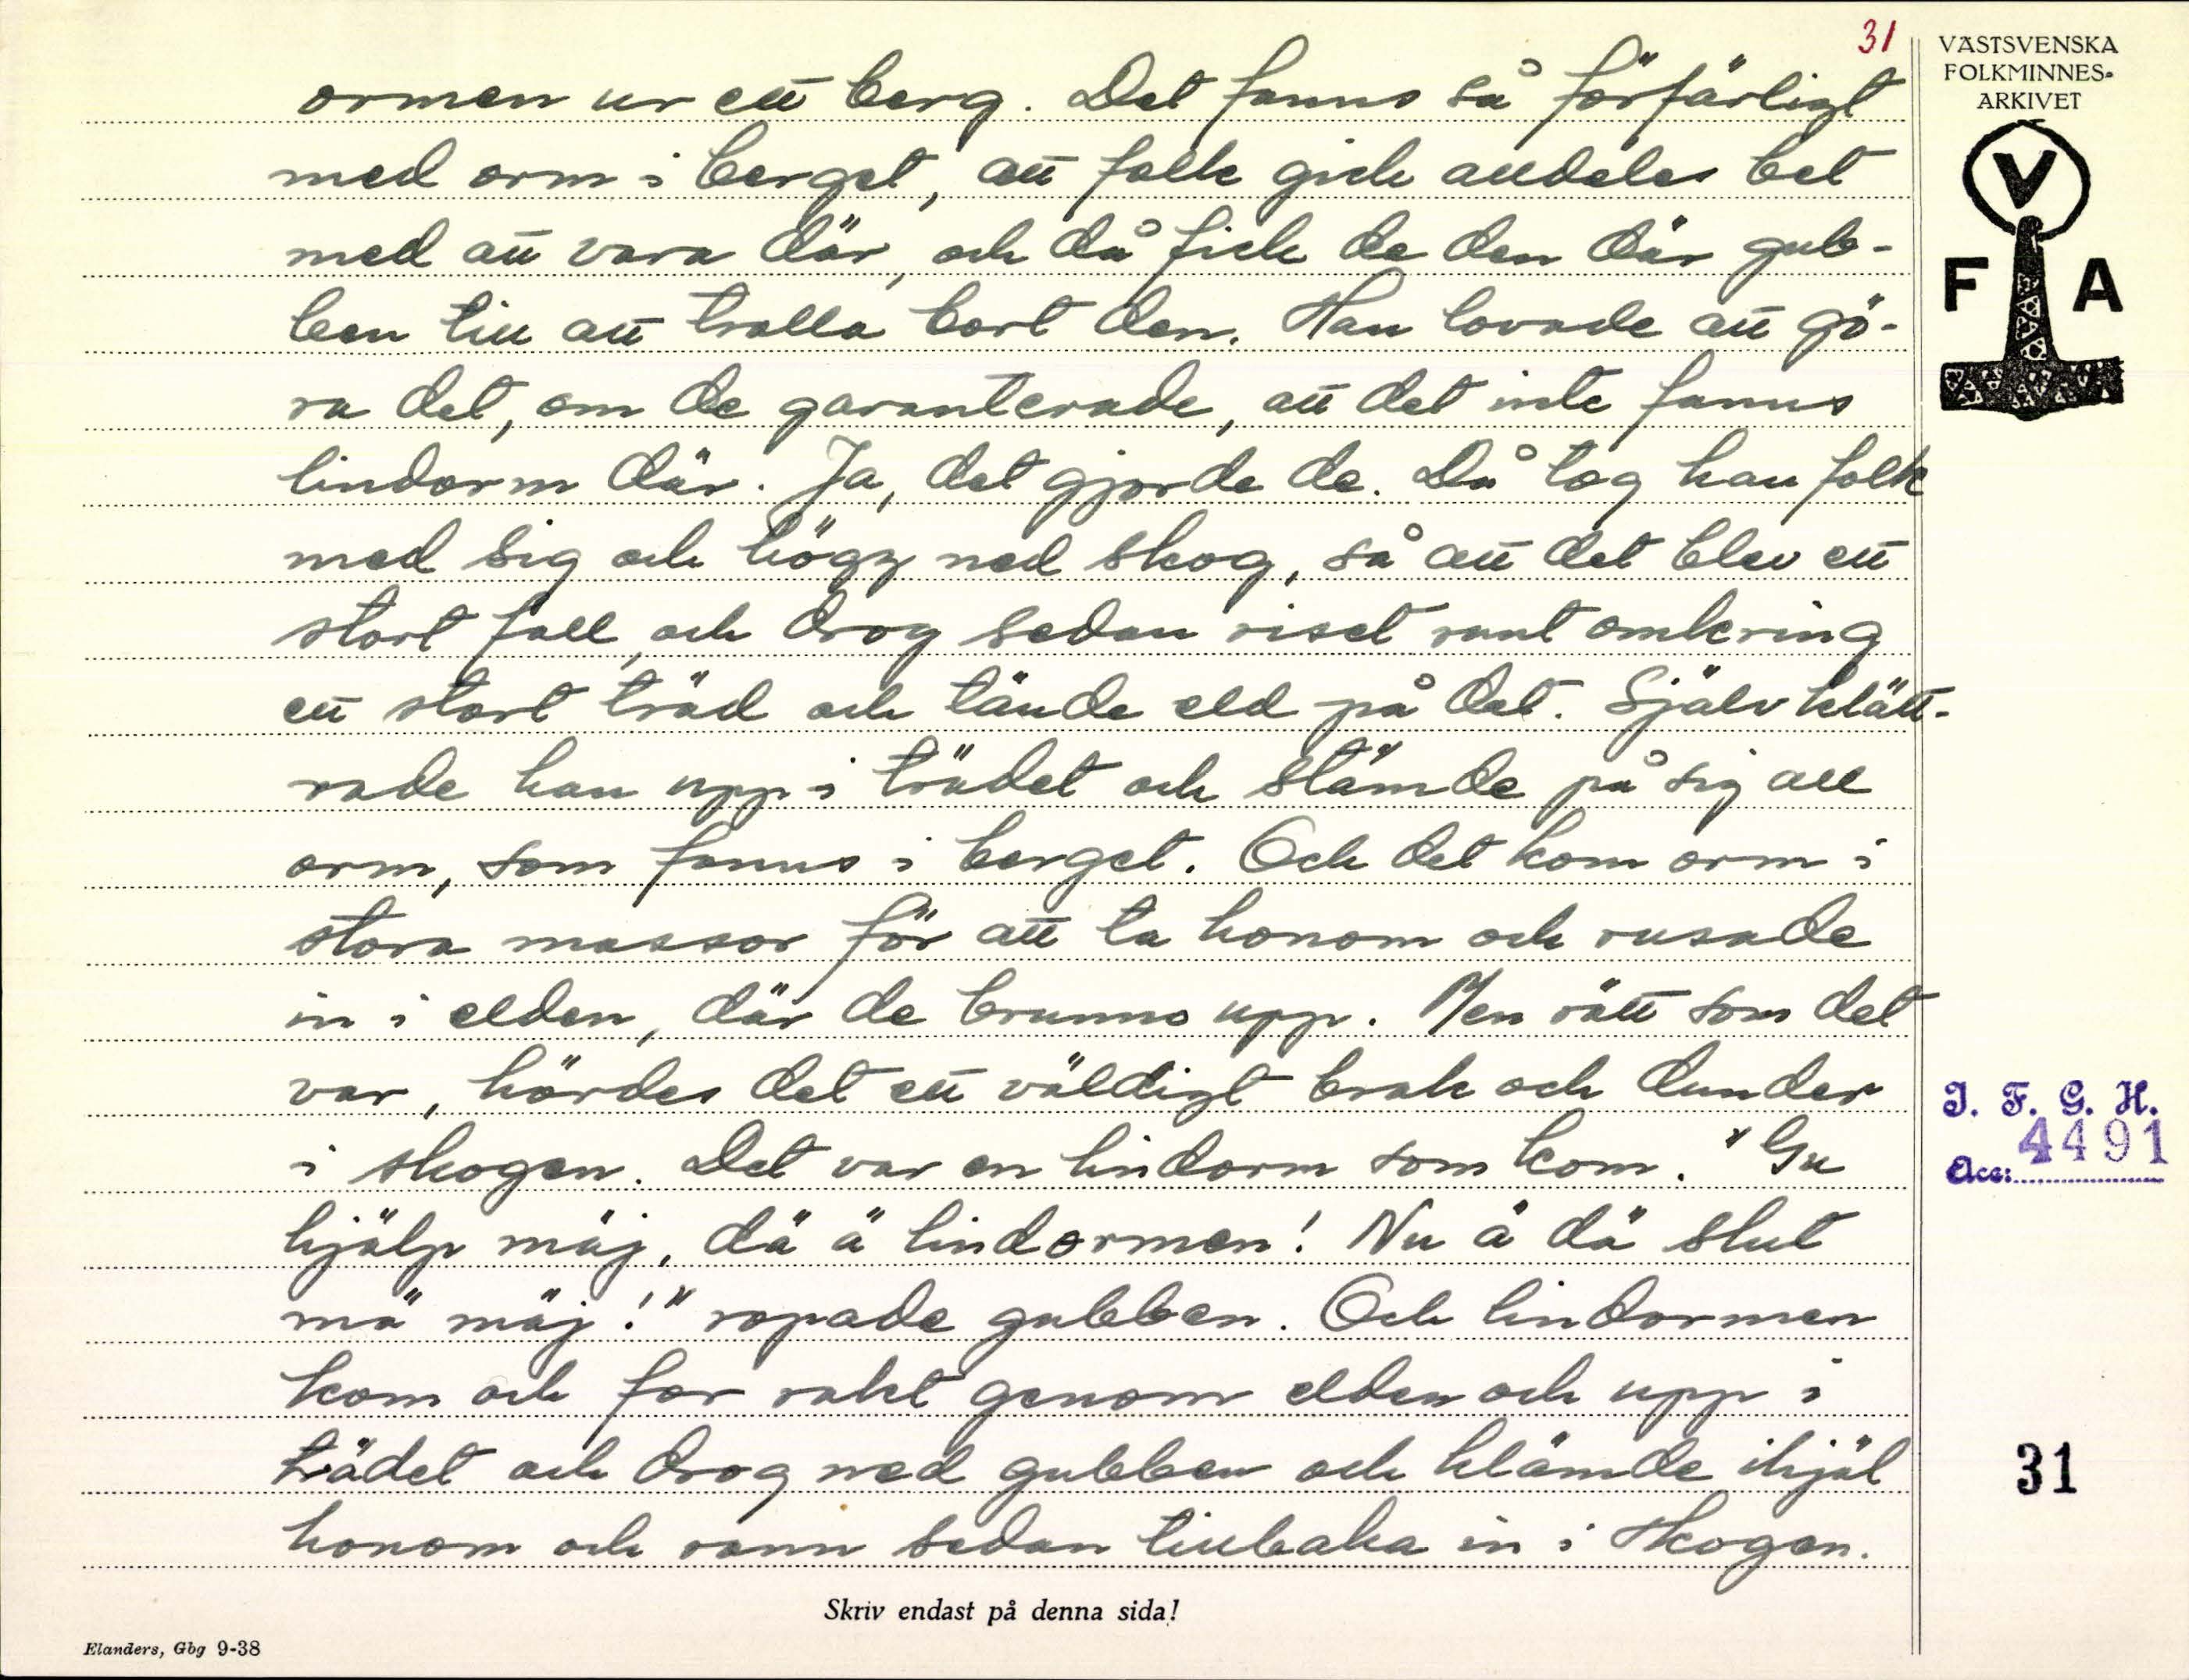 31
VÄSTSVENSKA
FOLKMINNES-
ARKIVET
V
F A
ormen ur ett berg. Det fanns så förfärligt
med orm i berget, att folk gick alldeles bet
med att vara där, och då fick de den där gub-
ben till att trolla bort den. Han lovade att gö-
ra det, om de garanterade, att det inte fanns
lindorm där. Ja, det gjorde de. Då tog han folk
med sig och högg ned skog, så att det blev ett
stort fall, och drog sedan riset runt omkring
ett stort träd och tände eld på det. Själv klätt-
rade han upp i trädet och stämde på sig all
orm, som fanns i berget. Och det kom orm i
stora massor för att ta honom och rusade
in i elden, där de brunno upp. Men rätt som det
var, hördes det ett väldigt brak och dunder
i skogen. Det var en lindorm som kom. "Gu
hjälp mäj, dä ä lindormen! Nu ä dä slut
mä mäj!" ropade gubben. Och lindormen
kom och for rakt genom elden och upp i
trädet och drog ned gubben och klämde ihjäl
honom och rann sedan tillbaka in i skogen.
I. F. G. H.
4491
Acc:
31
Skriv endast på denna sida!
Elanders, Gbg 9-38